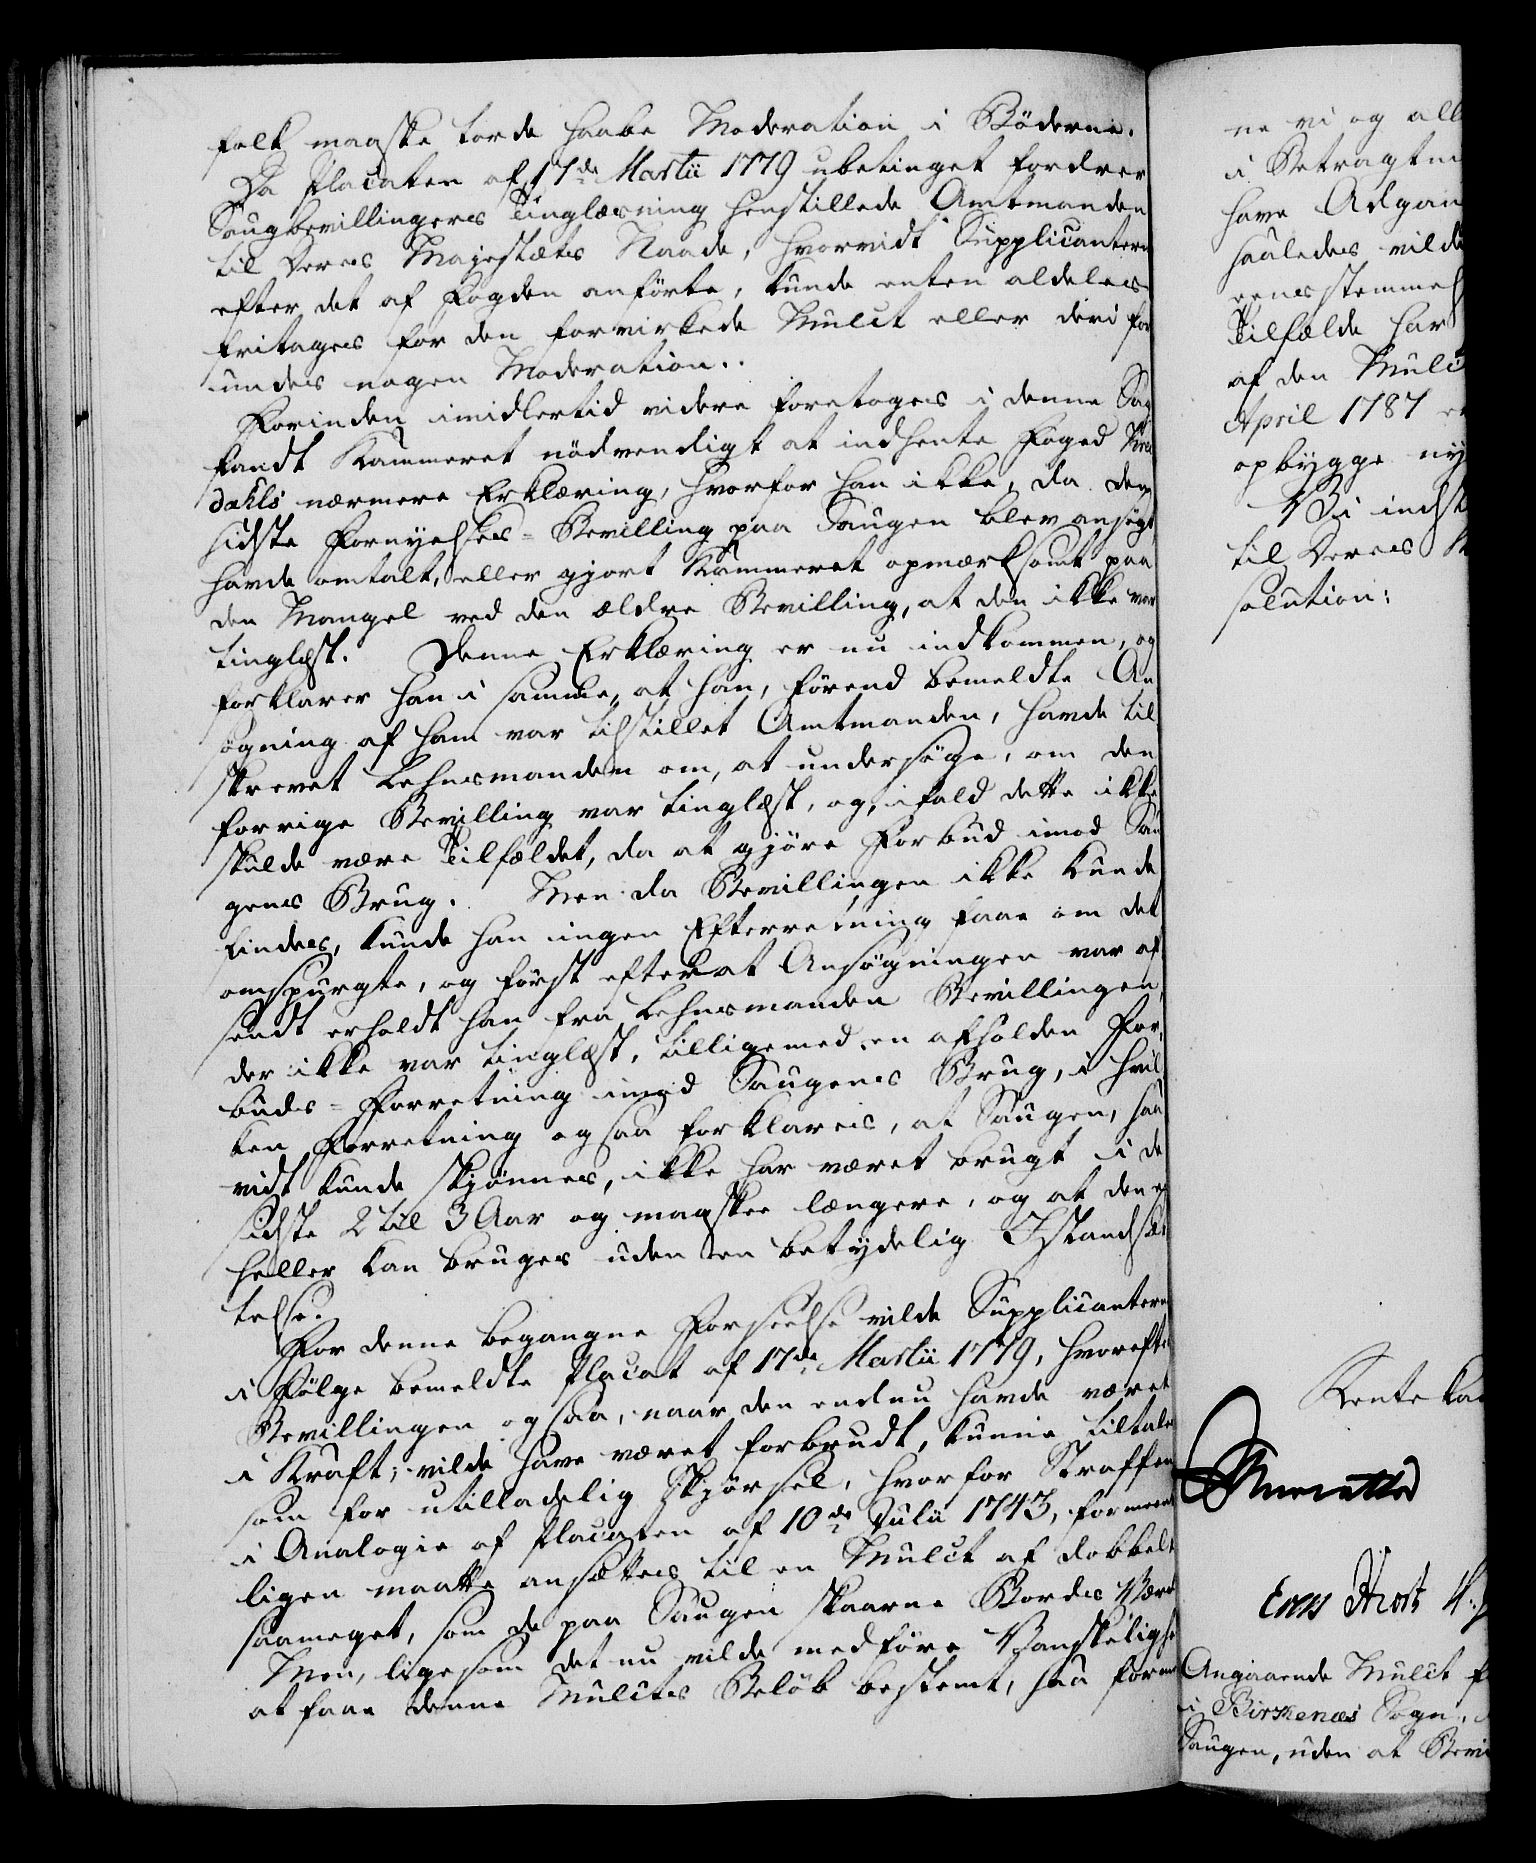 folk maaske torde haabe Moderation i Böderne.
Da Placaten af 17de Martii 1779 ubetinget fordrer
Saugbevillingers Tinglæsning henstillede Amtmanden
til Deres Majestæts Naade, hvorvidt Supplicanterne
efter det af Fogden anförte, kunde enten aldeles
fritages for den forvirkede Mulct eller deri for
undes nogen Moderation.
Forinden imidlertid videre foretoges i denne Sag
fandt Kammeret nödvendigt at indhente Foged
dahls nærmere Erklæring, hvorfor han ikke, da den
sidste Fornyelses-Bevilling paa Saugen blev ansögt,
havde omtalt, eller gjort Kammeret opmærksomt paa
den Mangel ved den ældre Bevilling, at den ikke var
tinglæst. Denne Erklæring er nu indkommen, og
forklarer han i samme, at han, förend bemeldte An
sögning af ham var tilstillet Amtmanden, havde til
skrevet Lehnsmanden om, at undersöge, om den
forrige Bevilling var tinglæst, og, ifald dette ikke
skulde være Tilfældet, da at gjöre Forbud imod Sau
gens Brug. Men da Bevillingen ikke kunde
findes, kunde han ingen Efterretning faae om det
omspurgte, og först efterat Ansögningen var af
sendt erholdt han fra Lehnsmanden Bevillingen,
der ikke var tinglæst, tilligemed en afholden For
buds-Forretning imod Saugens Brug, i hvil
ken Forretning ogsaa forklares, at Saugen, saa
vidt kunde skjönnes, ikke har været brugt i de
sidste 2 til 3 Aar og maaskee længere, og at den ej
heller kan bruges uden en betydelig Istandsæt
telse.
For denne begangne Forseelse vilde Supplicanterne
i Fölge bemeldte Placat af 17de Martii 1779, hvorefter
Bevillingen ogsaa, naar den endnu havde været
i Kraft, vilde have været forbrudt, kunne tiltales
som for utilladelig Skjörsel, hvorfor Straffen
i Analogie af Placaten af 10de Julii 1743, formeent
ligen maatte ansættes til en Mulct af dobbelt
saameget, som de paa Saugen skaarne Bordes Værd
Men, ligesom det nu vilde medföre Vanskelighed
at faae denne Mulcts Belöb bestemt, saa forme
ne vi og all
i Betragtni
have Adgan
saaledes vild
eensstemmel
Tilfælde har
af den Mulct
April 1787
opbygge ny
Vi indst
til Deres
solution:
Rente ka
Angaaende Mulct f
i Birkenæs Sogn,
Saugen, uden at Bevi